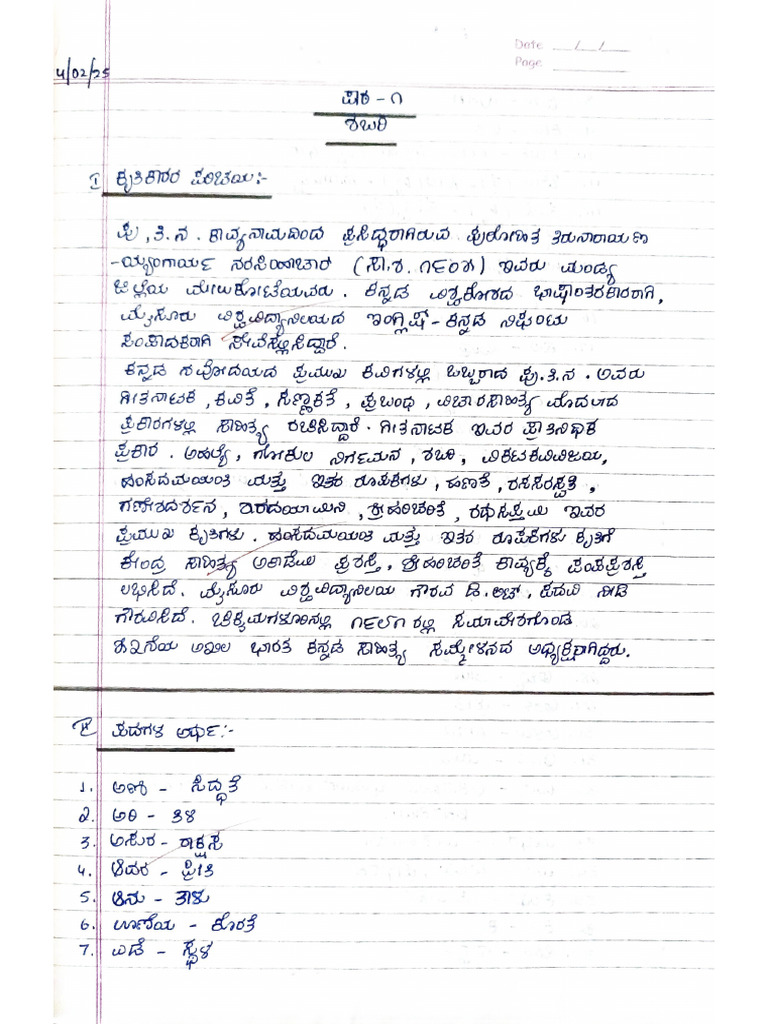 Date __/__/__
Page
4/02/25
ಪಾಠ - ೧
ಶಬರಿ
I ಕೃತಿಕಾರರ ಪರಿಚಯ:-
ಪು.ತಿ.ನ. ಕಾವ್ಯನಾಮದಿಂದ ಪ್ರಸಿದ್ಧರಾಗಿರುವ ಪುರೋಹಿತ ತಿರುನಾರಾಯಣ
-ಯ್ಯಂಗಾರ್ಯ ನರಸಿಂಹಾಚಾರ (ಸಾ.ಶ. ೧೯೦೫) ಇವರು ಮಂಡ್ಯ
ಜಿಲ್ಲೆಯ ಮೇಲುಕೋಟೆಯವರು. ಕನ್ನಡ ವಿಶ್ವಕೋಶದ ಭಾಷಾಂತರಕಾರರಾಗಿ,
ಮೈಸೂರು ವಿಶ್ವವಿದ್ಯಾನಿಲಯದ ಇಂಗ್ಲಿಷ್-ಕನ್ನಡ ನಿಘಂಟು
ಸಂಪಾದಕರಾಗಿ ಸೇವೆಸ್ಲಿಸಿದ್ದಾರೆ.
ಕನ್ನಡ ನವೋದಯದ ಪ್ರಮುಖ ಕವಿಗಳಲ್ಲಿ ಒಬ್ಬರಾದ ಪು.ತಿ.ನ. ಅವರು
ಗೀತನಾಟಕ, ಕವಿತೆ, ಸಣ್ಣಕತೆ, ಪ್ರಬಂಧ, ವಿಚಾರಸಾಹಿತ್ಯ ಮೊದಲಾದ
ಪ್ರಕಾರಗಳಲ್ಲಿ ಸಾಹಿತ್ಯ ರಚಿಸಿದ್ದಾರೆ. ಗೀತನಾಟಕ ಇವರ ಪ್ರಾತಿನಿಧಿಕ
ಪ್ರಕಾರ. ಅಹಲ್ಯೆ, ಗೋಕುಲ ನಿರ್ಗಮನ, ಶಬರಿ, ವಿಕಟಕವಿವಿಜಯ,
ಹಂಸದಮಯಂತಿ ಮತ್ತು ಇತರ ರೂಪಕಗಳು, ಹಣತೆ, ರಸಸರಸ್ವತಿ,
ಗಣೇಶದರ್ಶನ, ಶಾರದಯಾಮಿನಿ, ಶ್ರೀಹರಿಚರಿತೆ, ರಥಸಪ್ತಮಿ ಇವರ
ಪ್ರಮುಖ ಕೃತಿಗಳು. ಹಂಸದಮಯಂತಿ ಮತ್ತು ಇತರ ರೂಪಕಗಳು ಕೃತಿಗೆ
ಕೇಂದ್ರ ಸಾಹಿತ್ಯ ಅಕಾಡೆಮಿ ಪ್ರಶಸ್ತಿ, ಶ್ರೀಹರಿಚರಿತೆ ಕಾವ್ಯಕ್ಕೆ ಪಂಪಪ್ರಶಸ್ತಿ
ಲಭಿಸಿದೆ. ಮೈಸೂರು ವಿಶ್ವವಿದ್ಯಾನಿಲಯ ಗೌರವ ಡಿ.ಲಿಟ್. ಪದವಿ ನೀಡಿ
ಗೌರವಿಸಿದೆ. ಚಿಕ್ಕಮಗಳೂರಿನಲ್ಲಿ ೧೯೮೧ರಲ್ಲಿ ಸಮಾವೇಶಗೊಂಡ
೫೩ನೆಯ ಅಖಿಲ ಭಾರತ ಕನ್ನಡ ಸಾಹಿತ್ಯ ಸಮ್ಮೇಳನದ ಅಧ್ಯಕ್ಷರಾಗಿದ್ದರು.
II ಪದಗಳ ಅರ್ಥ:-
1. ಅಣಿ - ಸಿದ್ಧತೆ
2. ಅರಿ - ತಿಳಿ
3. ಅಸುರ - ರಾಕ್ಷಸ
4. ಆದರ - ಪ್ರೀತಿ
5. ಆನು - ತಾಳು
6. ಊಣೆಯ - ಕೊರತೆ
7. ಎಡೆ - ಸ್ಥಳ